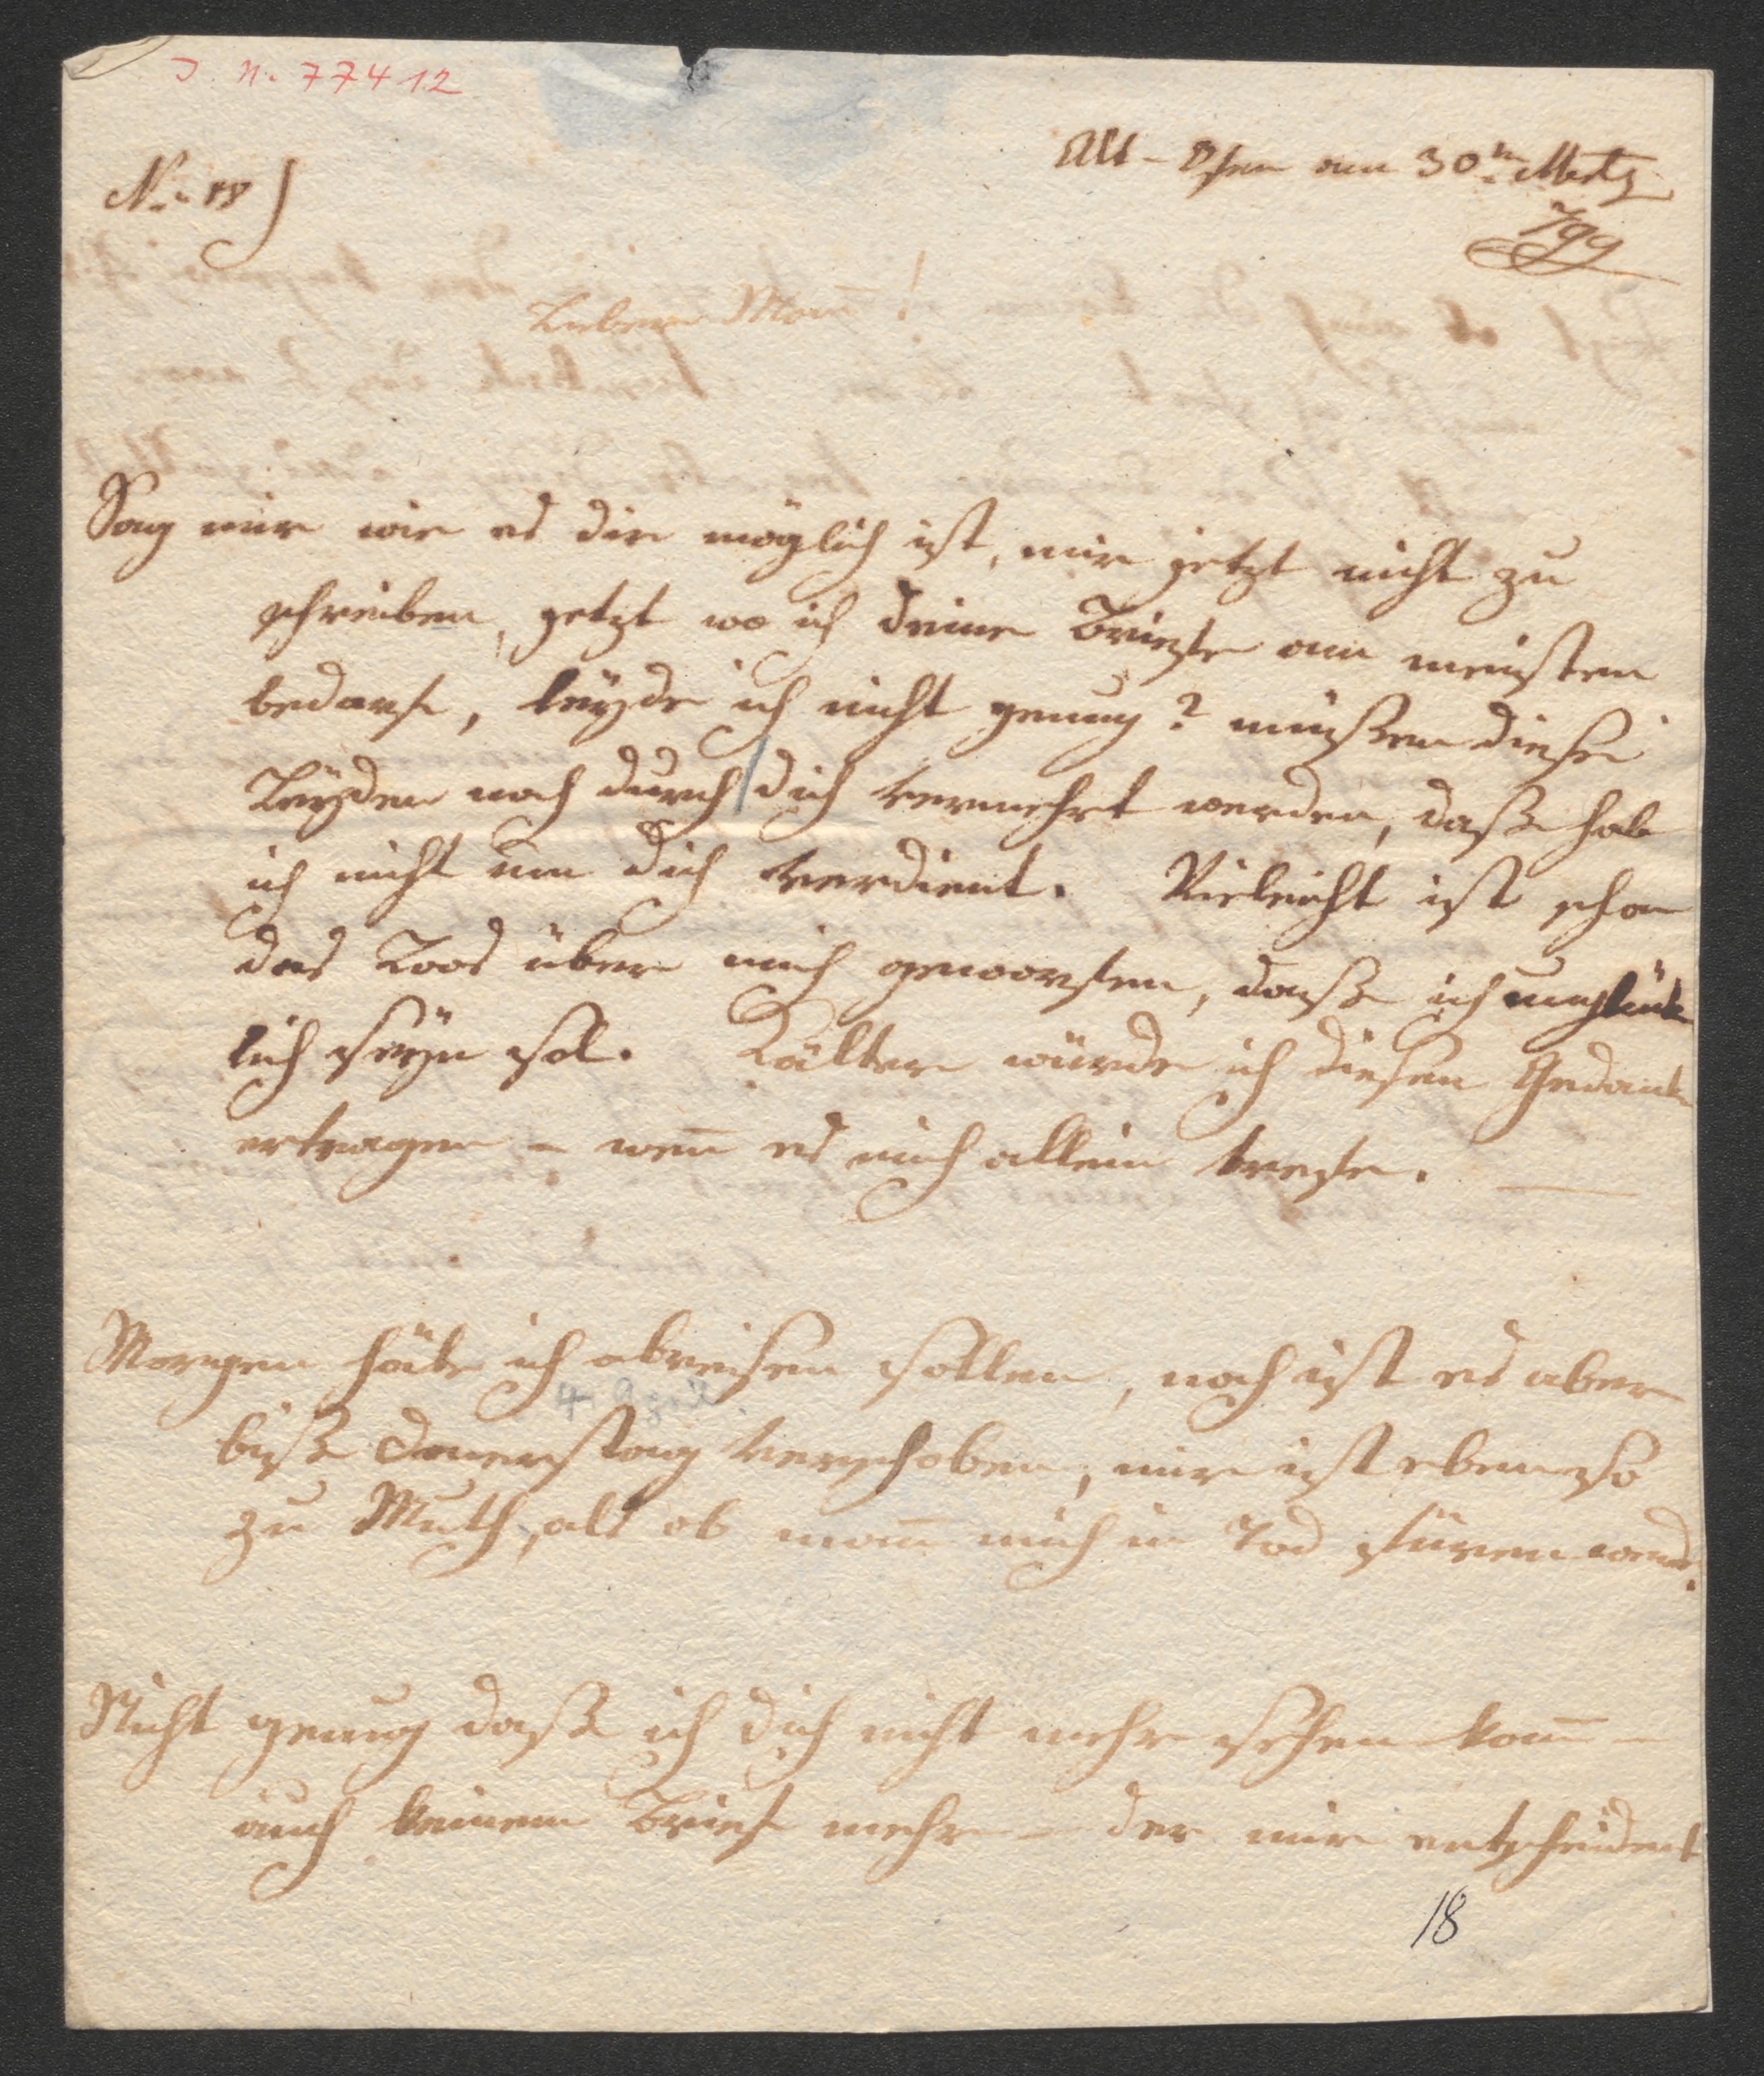 J. N. 77412
Alt-Ofen am 30tn Mertz
799
No: 18)
Lieber Mañ!
Sag mir wie es dir möglich ist, mir jetzt nicht zu
schreiben, jetzt wo ich deine Briefe am meisten
bedarf, leyde ich nicht genug? müßen diese
Leyden noch durch dich vermehrt werden, daß hab
ich nicht um dich verdient. Vieleicht ist schon
das Loos über mich geworfen, daß ich unglük
lich seyn sol. Kälter würde ich diesen Gedank
ertragen – weñ es mich allein trefe. —
Morgen häte ich abreisen sollen, noch ist es aber
4. April.
biß Donerstag verschoben, mir ist eben so
zu Muth, als ob mañ mich in Tod füren
Nicht genug daß ich dich nicht mehr sehen kañ –
auch keinem Brief mehr – der mir entscheident
18